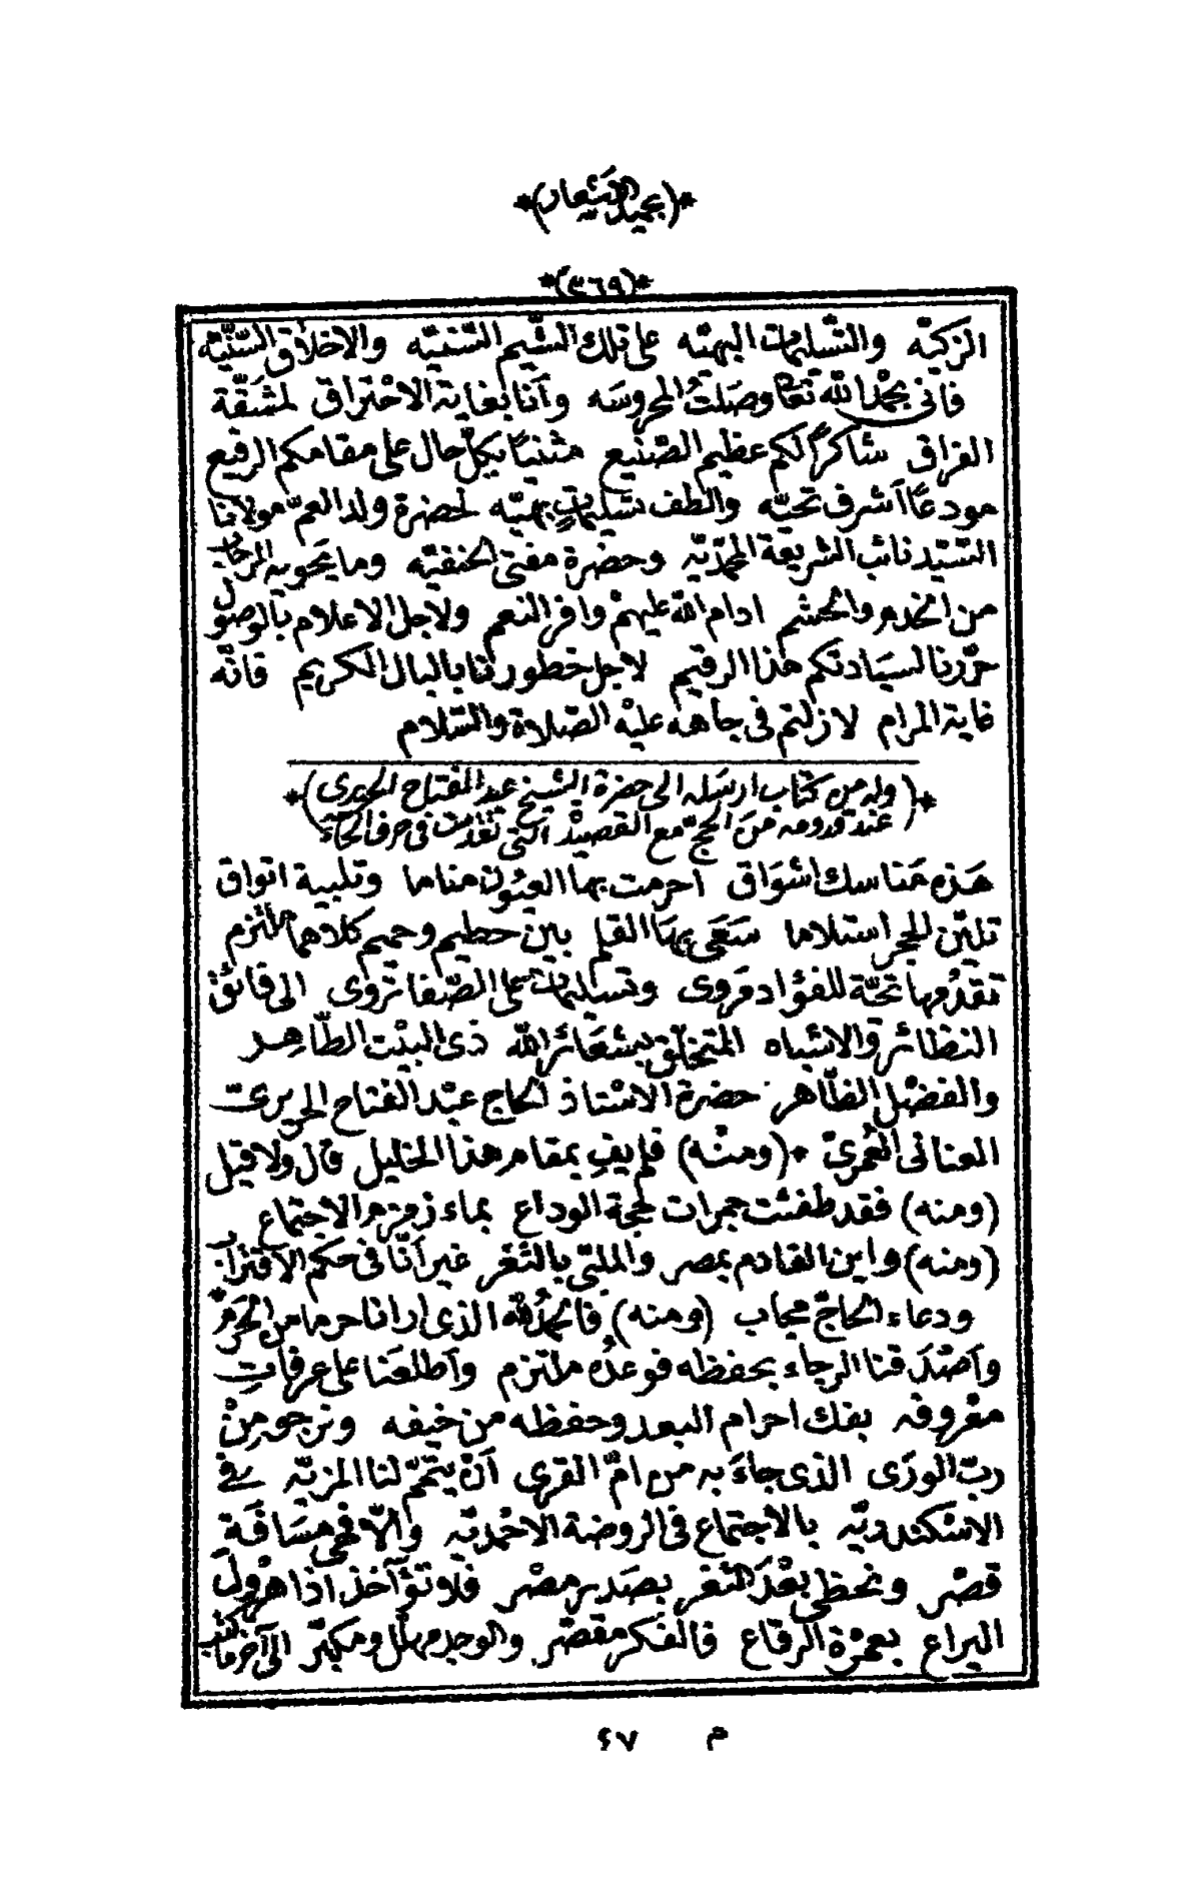 *(٣٦٩)*
الزكيّه والتّسليمات البهيّه على تلك الشّيم السّنيّه والاخلاق السّنيّه
فانى بحمد الله تعالى وصلت المحروسه وأنا بغاية الاحتراق لمشقّة
الفراق شاكرًا لكم عظيم الصّنيع مثنيًا بكلّ حال على مقامكم الرفيع
مودعًا أشرف تحيّه والطف تسليمات بهيّه لحضرة ولد العمّ مولانا
السّيّد نائب الشريعة المحمّديّه وحضرة مفتى الحنفيّه وما يحويه الرحاب
من الخدم والحشم ادام الله عليهم وافر النعم ولاجل الاعلام بالوصول
حرّرنا لسيادتكم هذا الرقيم لاجل خطورنا بالبال الكريم فانّه
غاية المرام لازلتم فى جاهه عليه الصّلاة والسّلام
*(وله من كتاب ارسله الى حضرة الشيخ عبد الفتاح الحريرى)*
عند قدومه من الحجّ مع القصيدة التى تقدّمت فى حرف الحآء
هذه مناسك اشواق احرمت بها العيون مناما وتلبية اتواق
تليّن للحجر استلاما سعى بها القلم بين حطيم وحميم كلاهما ملتزم
تقدُمها تحيّة للفؤاد مروى وتسليمات على الصّفا تروى الى فائق
النظائر والاشباه المتخلّق بشعائر الله ذى البيت الطّاهر
والفضل الظّاهر حضرة الاستاذ الحاج عبد الفتاح الحريرىّ
العنانى العُمرىّ *(ومنه) فلم يفِ بمقام هذا الخليل قال ولا قيل
(ومنه) فقد طفئت جمرات لحجة الوداع بماء زمزم الاجتماع
(ومنه) واين القادم بمصر والملبّى بالثغر غير أنّا فى حكم الاقتراب
ودعاء الحاجّ مجاب (ومنه) فالحمدُ لله الذى ارانا حرما من الحَرَم *
وأصدَقنا الرجاء بحفظه فوعدُه ملتزم وأطلعَنا على عرفاتِ
معروفه بفك احرام البعد وحفظه من خيفه ونرجو منْ
ربّ الورَى الذى جاءَ به من امّ القرى أنْ يتمّم لنا المزيّه فى
الاسكندريّه بالاجتماع فى الروضة الاحمديّه والّا فهى مسَافَة
قصْر ونحظى بعْدَ الثغر بصَدر مصْر فلا تؤآخذ اذا هرْولَ
اليراع بعمرْة الرقاع فالفكر مقصّر والوجد مهلّل ومكبّر الى آخر ما كتب
م ٤٧